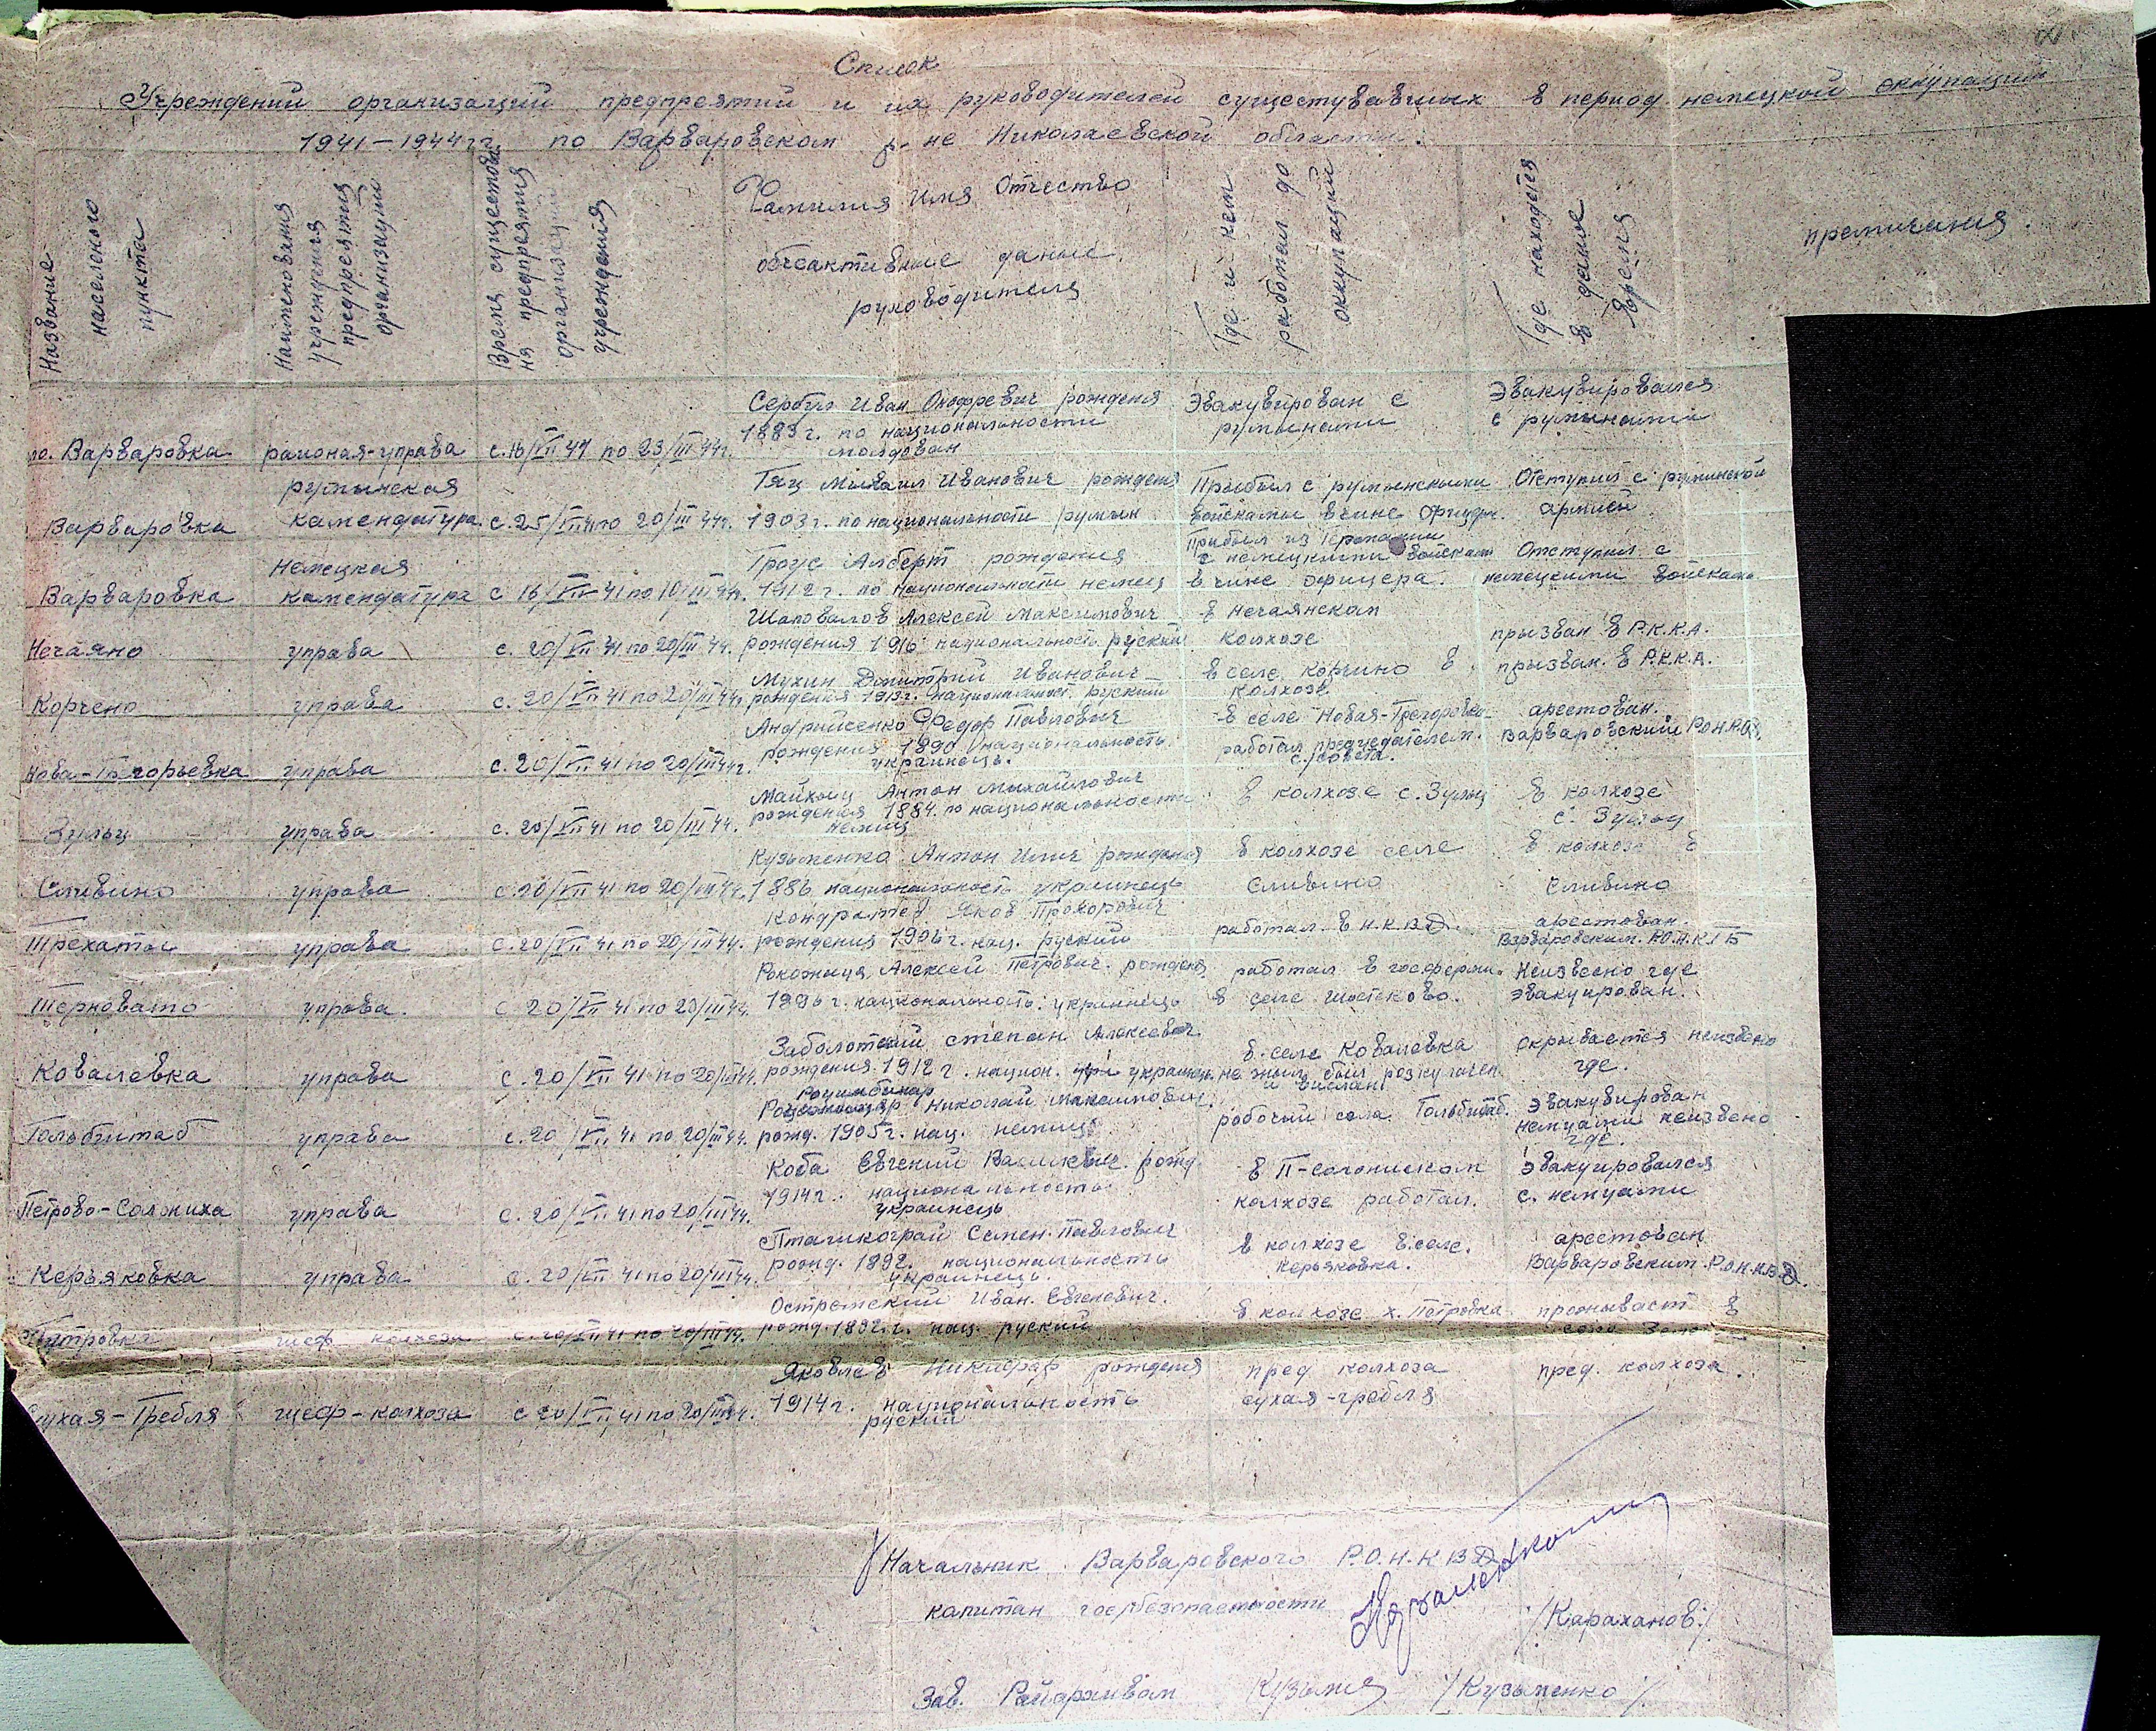 Список
Учреждений организаций предпреятий и их руководителей существувавших в период немецкой оккупации
1941-1944 гг. по Варваровском р-не Николаевской области.
Название
населеного
пункта
Наименования
учреждения
предпреятия
организации
Время существова
ня предпреятия
организации
учреждения
Фамилия Имя Отчество
обєактивные даные
руководителя
Где и кем
работал до
оккупации
Где находется
в даное
время
премичания.
Варваровка
районая-управа
с. 16/VIII 41 по 23/III 44г.
Сербул Иван Онофревич рожденя
1883 г. по национальности
молдован
Эвакувирован с
румынами
Эвакувировался
с румынами
Варваровка
румынская
камендатура
с. 25/VIII 41 по 20/III 44г.
Тяц Михаил Иванович рожденя
1903 г. по национальности румын
Прибыл с румынскими
войсками в чине офицера.
Отступил с румынской
армией.
Варваровка
немецкая
камендатура
с 16/VIII 41 по 10/III 44.
Гроус Альберт рождения
1912 г. по национальности немец
Прибыл из Германии
с немецкими войскам
в чине офицера.
Отступил с
немецкими войсками
Нечаяно
управа
с. 20/VIII 41 по 20/III 44.
Шаповалов Алексей Максимович
рождения 1916 национальность руский
в нечаянском
колхозе
призван в Р.К.К.А.
Корчено
управа
с. 20/VIII 41 по 20/III 44г.
Мухин Дмитрий Иванович
рождения 1913г. национальност руский
в селе корчино в
колхозе
призван. в Р.К.К.А.
Нова-Григорьевка
управа
с. 20/VIII 41 по 20/III 44г.
Андрийсенко Федор Павлович
рождения 1890 национальность
украинець.
в селе Новая-Грегоровка
работал председателем.
с/совета.
арестован.
Варваровский
Зульц
управа
с. 20/VIII 41 по 20/III 44.
Майхыц Антон михайлович
рожденя 1884. по национальности
немиц
в колхозе с. Зульц
в колхозе
с. Зульц
Сливино
управа
с. 20/VIII 41 по 20/III 44.
Кузьменко Антон Илич рожденя
1886 национальность украинець
в колхозе селе
Сливино
в колхозе в
Сливино
Трехатки
управа
с. 20/VIII 41 по 20/III 44.
Кондратев Яков Прохорович
рождения 1906 г. нац. руский
работал в Н.К.В.Д.
арестован.
Варваровским. Р.О.Н.К.Г.Б
Терновато
управа.
с 20/VIII 41 по 20/III 44.
Рокожиця Алексей Петрович. рожденя
национальность: украинець
работал в госферми.
в селе
Неизвесно где
эвакуирован.
Ковалевка
управа
с. 20/VIII 41 по 20/III 44.
Заболотний степан Алексеевич
рождения 1912 г. национ. украинец.
в селе Ковалевка
не жыл был розкулачен
и вислан.
скрывается неизвено
где.
Гольбштаб
управа
с. 20/VIII 41 по 20/III 44.
Николай Максимович
рожд. 1905 г. нац. немиц
робочий села Гольбштаб.
эвакувирован
немцами неизвено
где.
Петрово-Солониха
управа
с. 20/VIII 41 по 20/III 44.
Коба Евгений Василевич. рожд.
1914 г. национальность
украинець
в П-солониском
колхозе работал.
эвакуировался
с. немцами
Керьяковка
управа
с. 20/VIII 41 по 20/III 44.
Пташкограй Семен Павлович
рожд. 1892. национальность
украинець.
в колхозе в селе.
Керьяковка.
арестован
Варваровским Р.О.Н.К.В.Д.
Петровка
шеф колхоза
с. 20/VIII 41 по 20/III 44.
Иван. Евгенович.
рожд. 1892 г. нац. руский
в колхозе х. Петровка
прожывает в
Сухая-Гребля
шеф-колхоза
с 20/VIII 41 по 20/III 44.
Яковлев Никифар рожденя
1914 г. национальность
руский
пред колхоза
сухая-гребля
пред. колхоза.
Начальник Варваровского Р.О.Н.К.В.Д
капитан госбезопастности
/Караханов/
Зав. Райархивам Кузьме /Кузьменко/